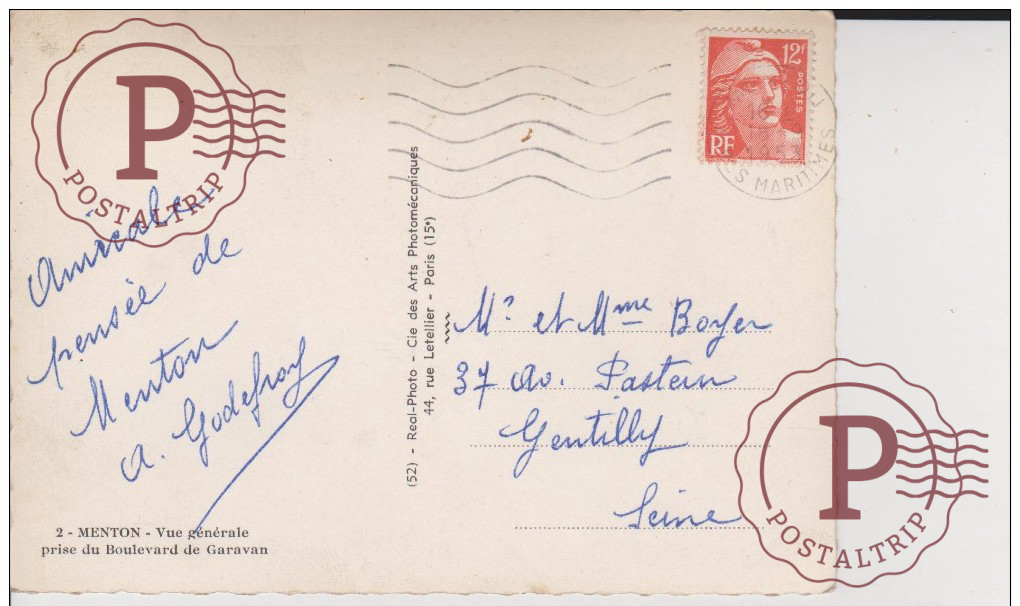 P
POSTALTRIP
Amicale
pensée de
Menton
A. Godefroy
2 - MENTON - Vue générale
prise du Boulevard de Garavan
(52) - Real-Photo - Cie des Arts Photomécaniques
44, rue Letellier - Paris (15e)
12F
POSTES
RF
ES MARITIMES
Mr et Mme Boyer
37 Av. Pasteur
Gentilly
Seine
P
POSTALTRIP